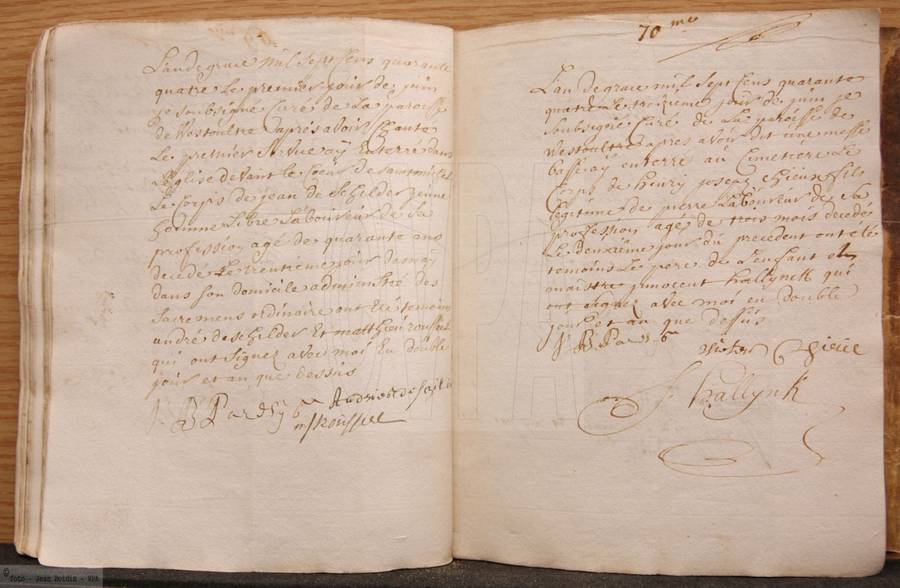 L'an de grace mil sept cens quarante
quatre le premier jour de juin
je soubsigné curé de la paroisse
de Westoultre aprés avoir chanté
le premier ay enterré dans
L'eglise devant le coeur de
le corps de jean de schilder jeune
homme libre laboureur de sa
profession agé de quarante ans
decedé le trentieme jour de may
dans son domicile administré des
sacremens ordinaire ont eté temoins
andré deschilder et matthieu roussel
qui ont signez avec moi en double
jour et an que dessus
70 me
L'an de grace mil sept cens quarante
quatre le troizieme jour de juin je
soubsigné curé de la paroisse de
Westoultre apres avoir dit une messe
basse ay enterré au cimetiere le
corps de henry joseph chieux fils
legitime de pierre laboureur de sa
profession agé de trois mois decedé
le deuxieme jour du precedent ont eté
temoins le pere du l'enfant et
maistre innocent hallynck qui
ont signez avec moi en double
jour et an que dessus
J hallynck
© foto - Jean Boidin - VPA